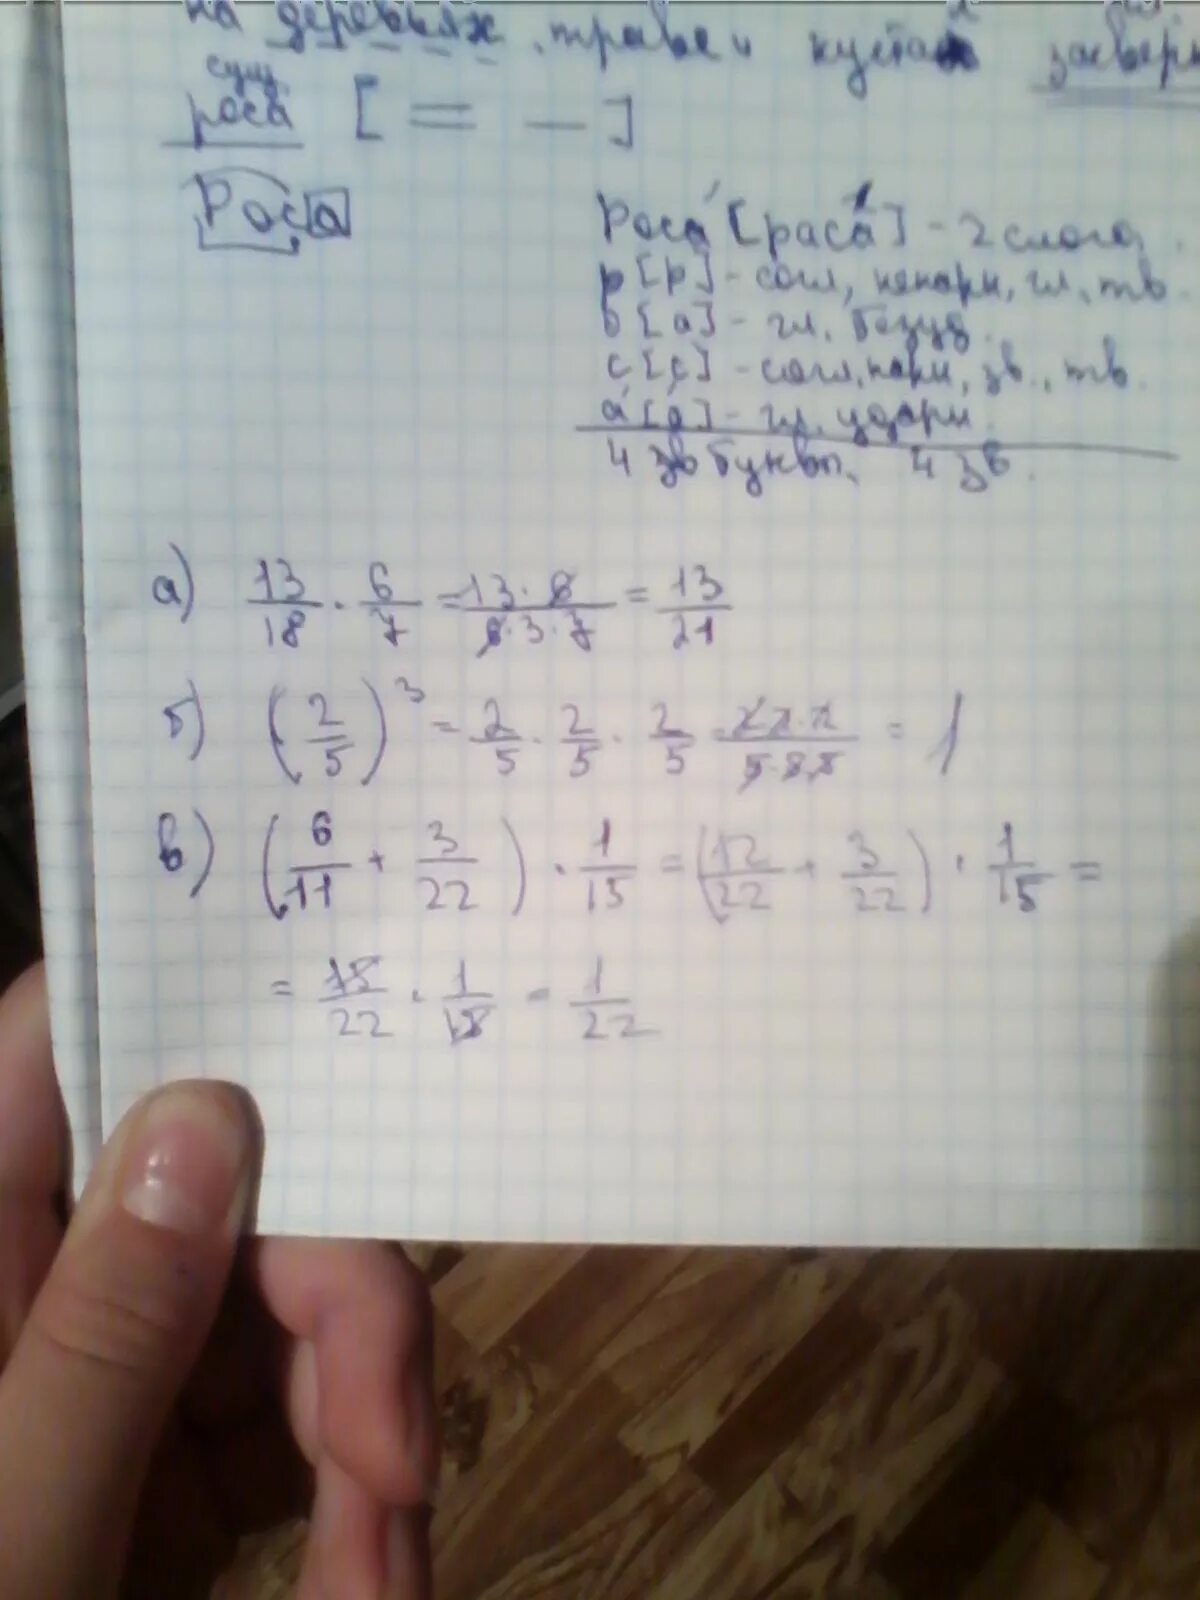 на деревьях, траве и
сущ.
роса [ = – ]
Роса
Роса́ [раса́] - 2 слога.
р [р] - согл, непарн, гл, тв.
о [а] - гл. безуд.
с [с] - согл, парн, зв., тв.
а́ [а́] - гл. ударн.
4 зв буквы. 4 зв.
а) 13/18 · 6/7 = 13 · 6/6 · 3 · 7 = 13/21
б) (2/5)³ = 2/5 · 2/5 · 2/5 = 2·2·2/5·5·5 = 1
в) (6/11 + 3/22) · 1/15 = (12/22 + 3/22) · 1/15 =
= 15/22 · 1/15 = 1/22